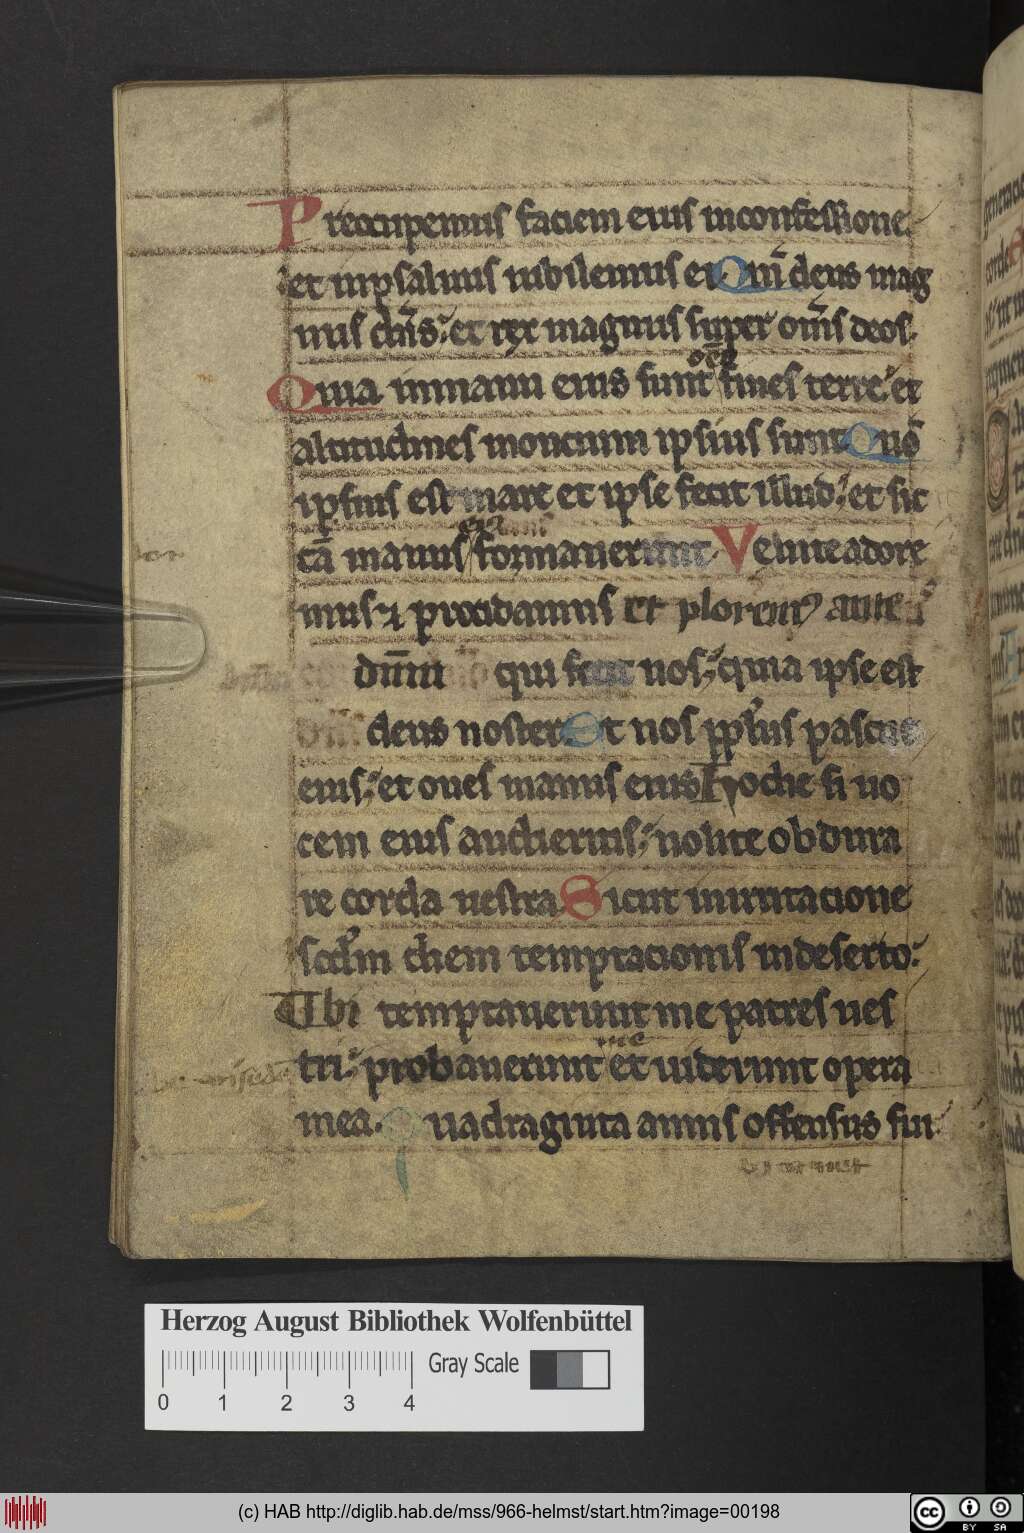 Preocupemus faciem eius inconfessione.
et inpsalmis iubilemus ei Qm̄ deus mag
nus dn̄s: et rex magnus super om̄s deos.
oēs
Quia inmanu eius sunt fines terre: et
altitudines moncium ipsius sunt Quō
ipsius est mare et ipse fecit illud: et sic
cā manus formauerunt Venite adore
mus ⁊ procidamus et plorem⁹ ante
dn̄m qui fecit nos: quia ipse est
deus noster Et nos pplus pascue
eius: et oues manus eius Hodie si uo
cem eius audieritis: nolite obdura
re corda uestra Sicut inirritacione
scdm diem temptacionis indeserto:
Ubi temptauerunt me patres ues
me
tri: probauerunt et uiderunt opera
mea. Quadraginta annis offensus fui.
Herzog August Bibliothek Wolfenbüttel
0 1 2 3 4 Gray Scale
(c) HAB http://diglib.hab.de/mss/966-helmst/start.htm?image=00198
cc BY SA